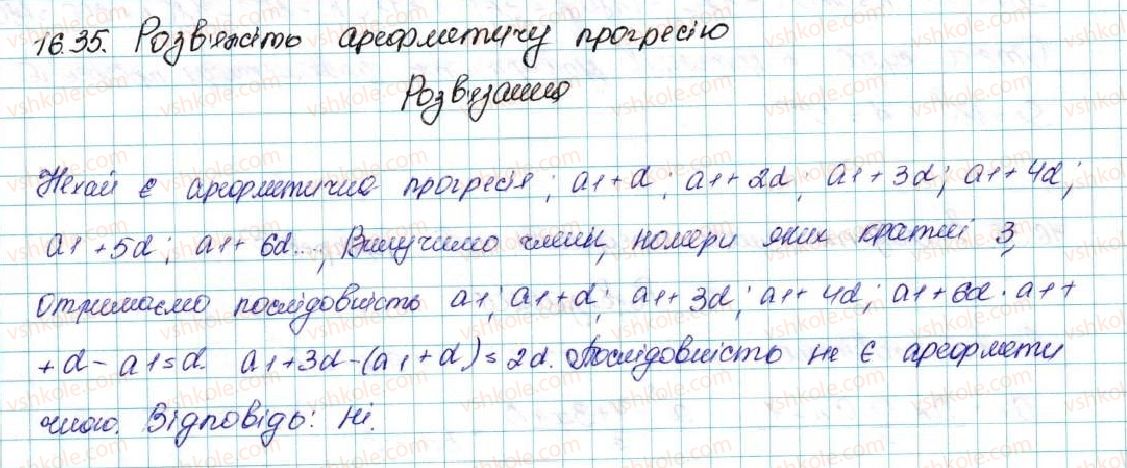 16.35. Розв'яжіть арефметичу прогресію
Розв'язання
Нехай є арефметична прогресія; a1+d; a1+2d; a1+3d; a1+4d;
a1+5d; a1+6d...; Вилучимо члени, номери яких кратні 3,
отримаємо послідовність a1; a1+d; a1+3d; a1+4d; a1+6d. a1+
+d-a1=d. a1+3d-(a1+d)=2d. Послідовність не є арефмети
чною. Відповідь: ні.